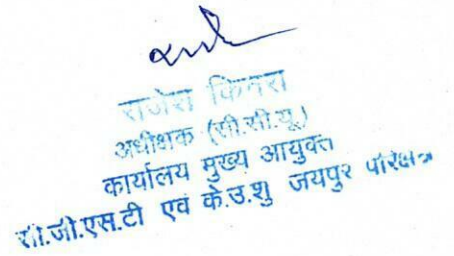 राजेश किनरा
अधीक्षक (सी.सी.यू.)
कार्यालय मुख्य आयुक्त
सी.जी.एस.टी एवं के.उ.शु जयपुर परिक्षेत्र